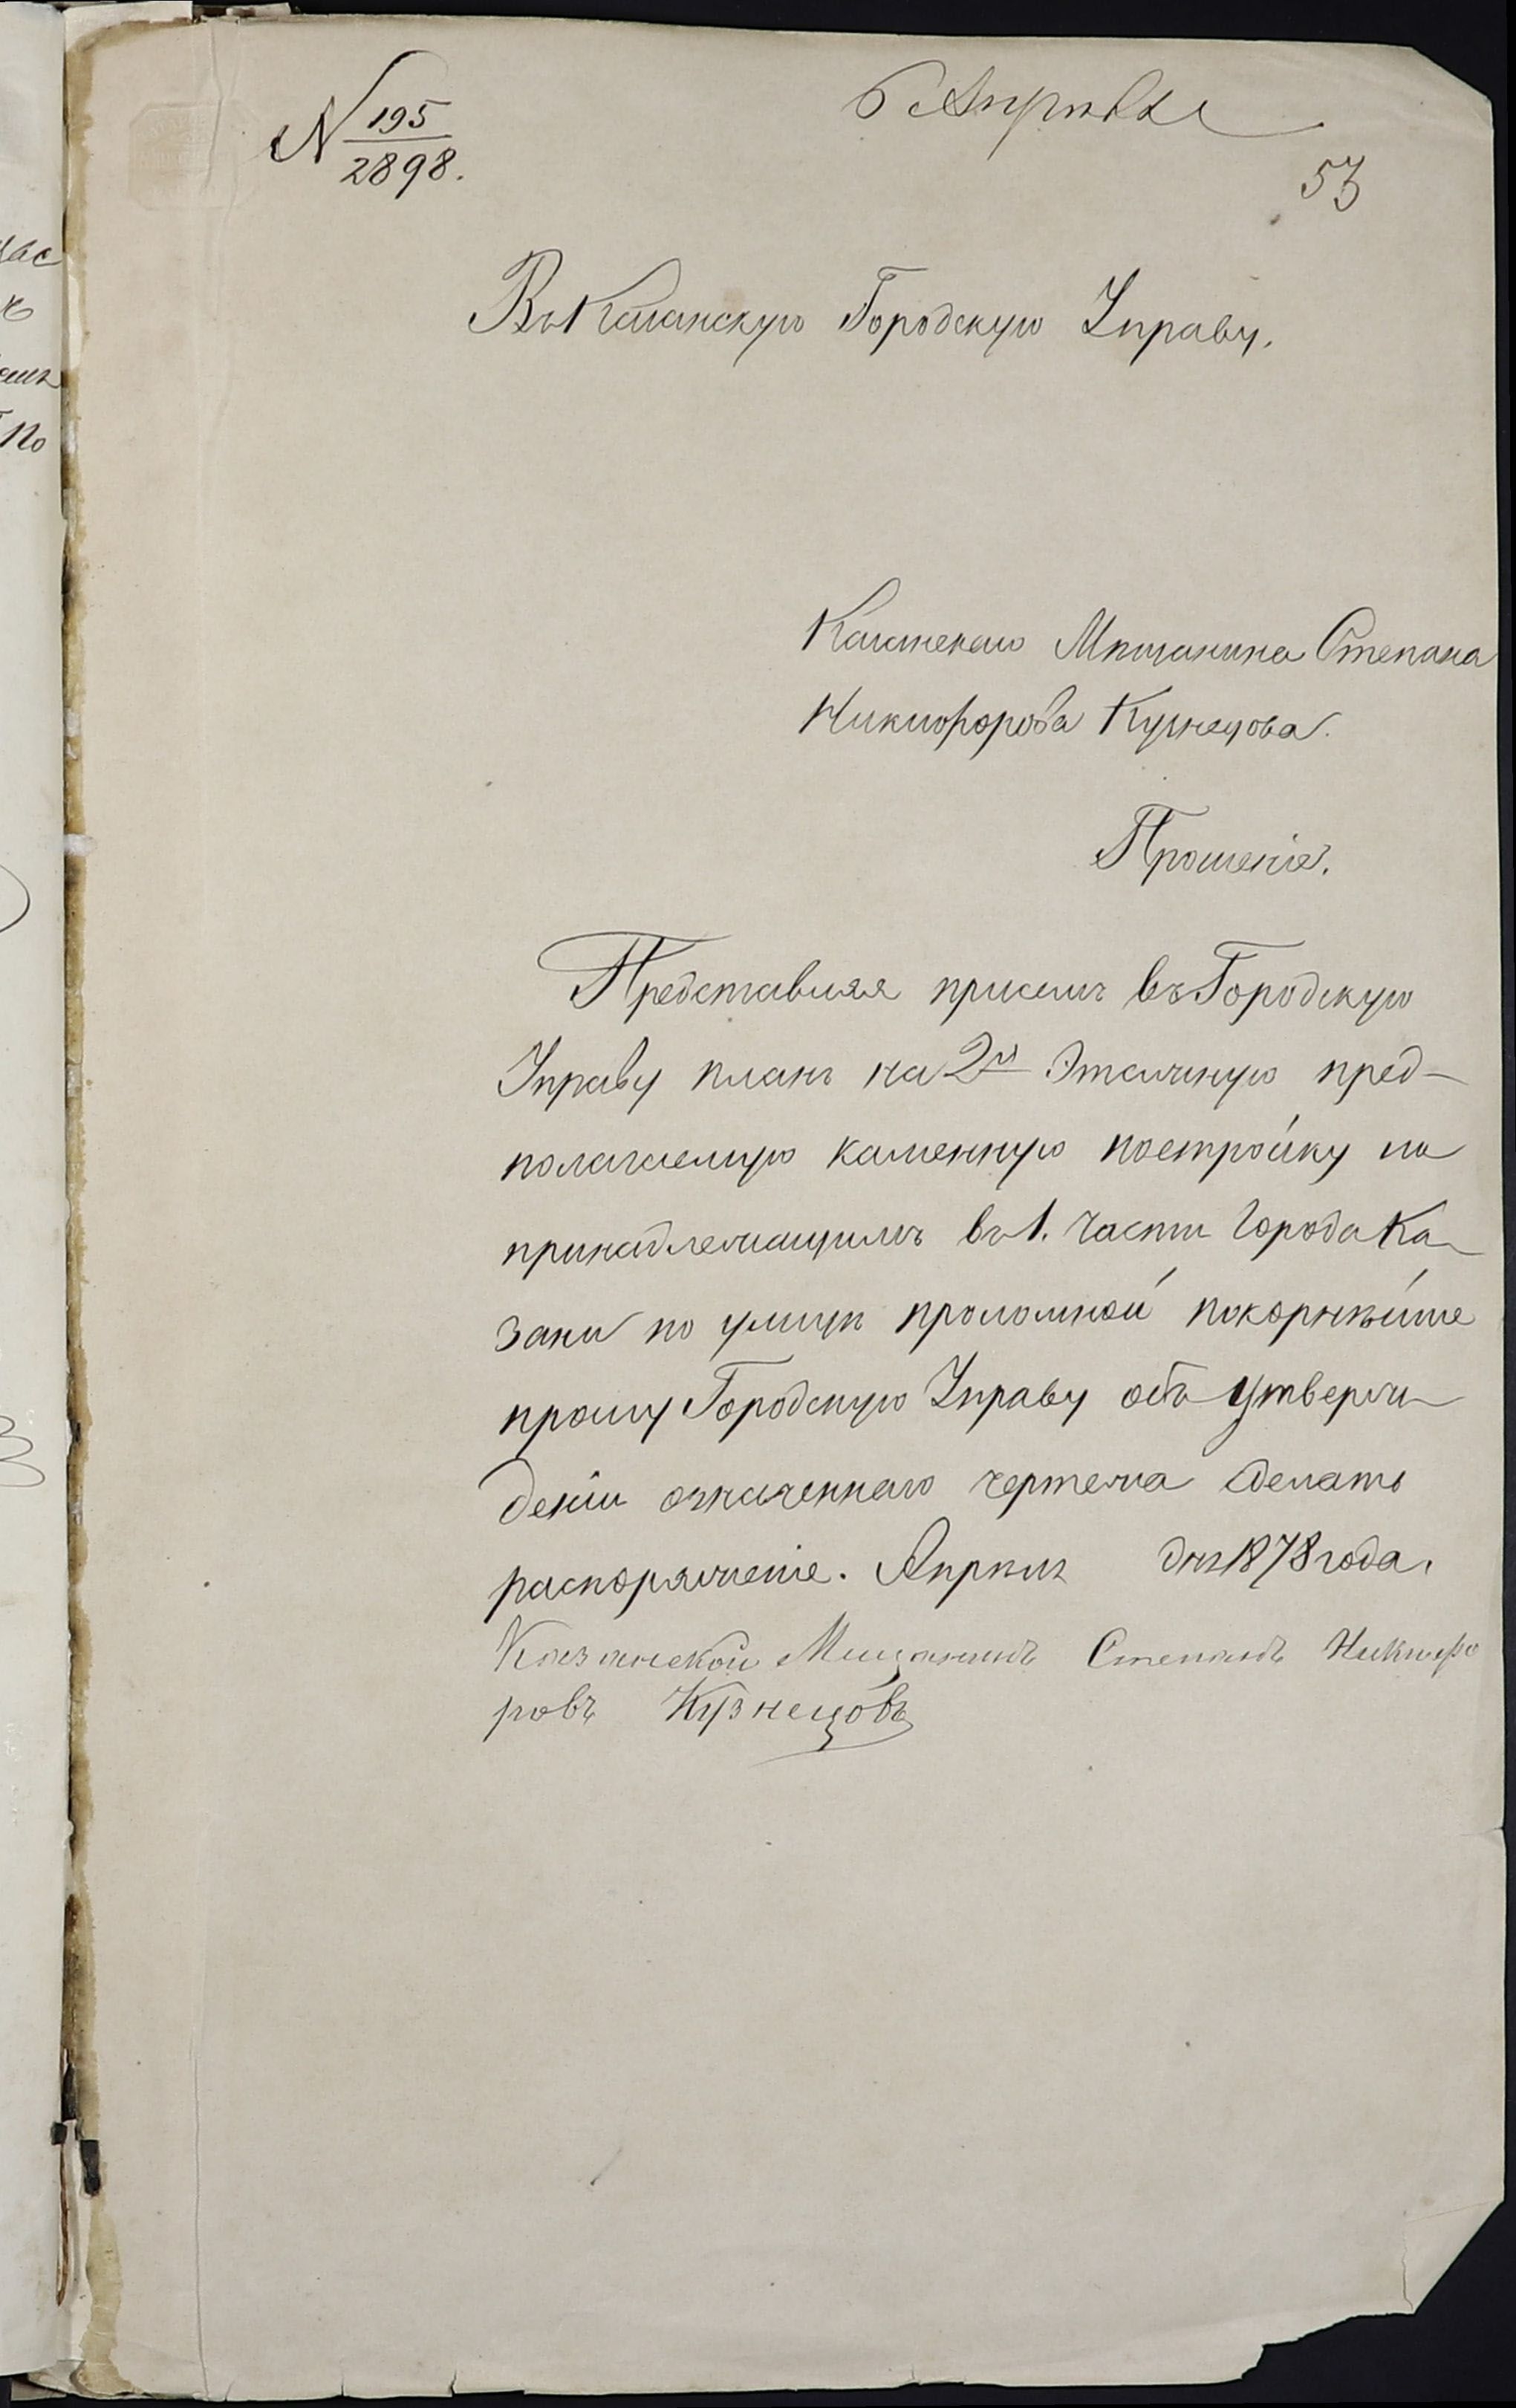 N 195/2898.
6 Апрѣля
53
Въ Казанскую Городскую Управу.
Казанскаго Мѣщанина Степана
Никифорова Кузнецова.
Прошеніе.
Представляя присемъ въ Городскую
Управу планъ на 2хъ Этажную пред-
полагаемую каменную постройку на
принадлежащимъ въ 1. части Города Ка-
зани по улицѣ проломной покорнѣйше
прошу Городскую Управу объ утверж-
деніи означеннаго чертежа сделать
распоряженіе. Апрѣля дня 1878 года.
Казанской Мищанинъ Степанъ Никифо
ровъ Кузнецовъ